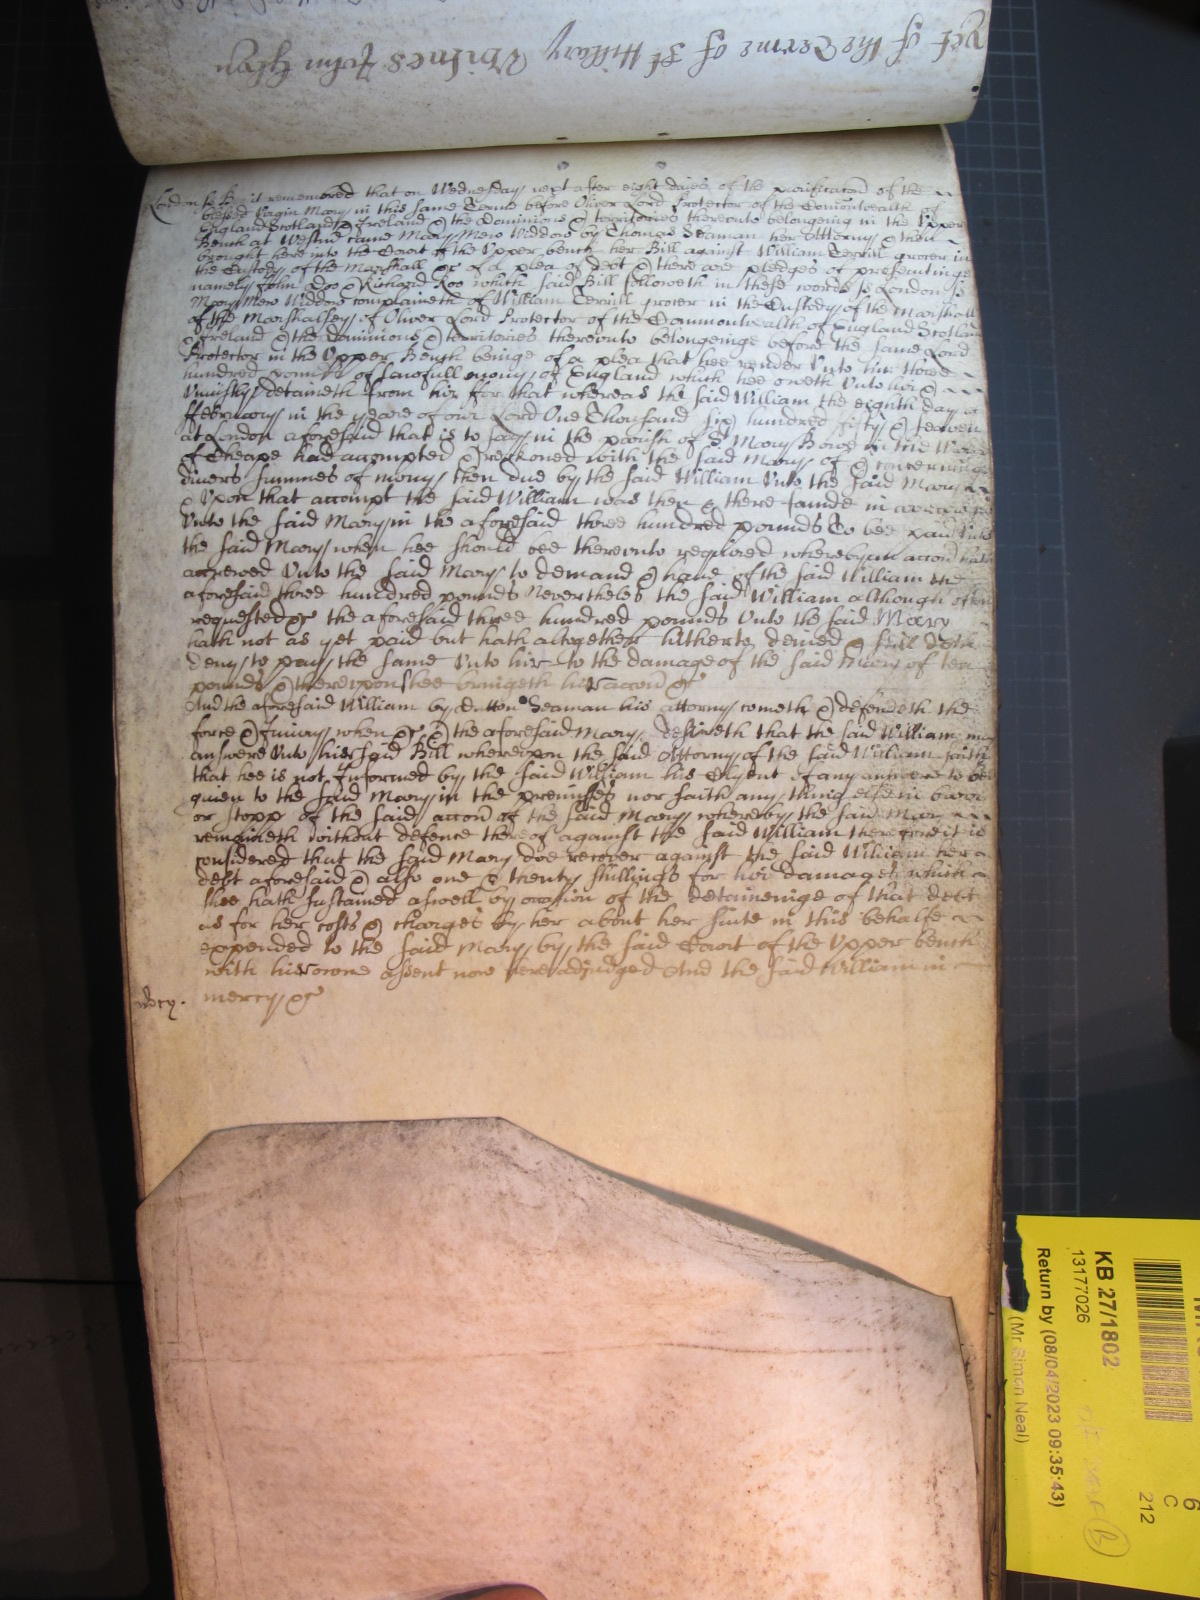 Yet of the Terme of St Hillary Witnes John Glyn
London ss Be it remembred that on Wednesday next after eight dayes of the purificacon of the
blessed Virgin Mary in this same Terme before Oliver Lord Protector of the Comonwealth of
England Scotland & Ireland & the Dominions & territories thereunto belongeing in the Upper
Bench at Westmr came Mary Mew Widdow by Thomas Seaman her Attorny & then
brought here into the Court of the Upper bench her Bill against William Terrill grocer in
the Custody of the Marshall &c of a plea of debt & there are pledges of prosecutinge
namely John Doo & Richard Roo which said Bill followeth in these words ss London ss
Mary Mew Widdow complaineth of William Terrill grocer in the Custody of the Marshall
of the Marshalsey of Oliver Lord Protector of the Commonwealth of England Scotland
& Ireland & the Dominions & territories thereunto belongeinge before the same Lord
Protector in the Upper Bench beinge of a plea that hee render Unto her three
hundred pounds of lawfull mony of England which hee oweth Unto her &
Uniustly detaineth from her for that whereas the said William the eighth day of
ffebruary in the yeare of our Lord One Thousand six hundred fifty & seaven
at London aforesaid that is to say in the parish of St Mary Bowe in the Ward
of Cheape had accompted & reckoned with the said Mary of & concerninge
divers summes of mony then due by the said William Unto the said Mary
& Upon that accompt the said William was then & there founde in arrerages
Unto the said Mary in the aforesaid three hundred pounds To bee paid Unto
the said Mary when hee should bee thereunto required whereby an accon hath
accrewed Unto the said Mary to demand & have of the said William the
aforesaid three hundred pounds Nevertheles the said William although often
requested &c the aforesaid three hundred pounds Unto the said Mary
hath not as yet paid but hath altogether hitherto denied & still doth
deny to pay the same Unto her to the damage of the said Mary of ten
pounds & thereupon shee bringeth her accon &c
And the aforesaid William by Seaman his attorny cometh & defendeth the
force & Iniury when &c & the aforesaid Mary desireth that the said William may
answere Unto her said Bill whereupon the said Attorny of the said William saith
that hee is not Informed by the said William his Clyent of any answere to bee
given to the said Mary in the premisses nor saith any thing else in barre
or stopp of the said accon of the said Mary whereby the said Mary
remaineth without defence thereof against the said William therefore it is
considered that the said Mary doe recover against the said William her
debt aforesaid & also one & twenty shillings for her damages which
shee hath sustained aswell by occasion of the detaineinge of that debt
as for her costs & charges by her about her suite in this behalfe
expended to the said Mary by the said Court of the Upper bench
with her owne assent now here adjudged And the said William in
mercy &c
Mercy.
KB 27/1802
13177026
Return by (08/04/2023 09:35:43)
(Mr Simon Neal)
6
C
212